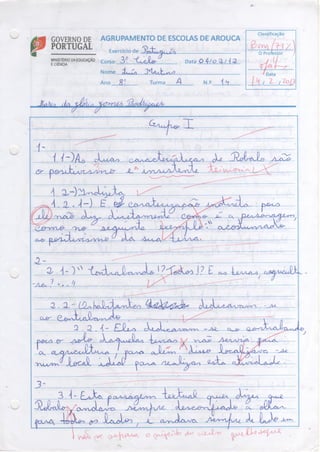 GOVERNO DE
PORTUGAL
MINISTÉRIO DA EDUCAÇÃO
E CIÊNCIA
AGRUPAMENTO DE ESCOLAS DE AROUCA
Exercício de Português
Curso 3º Ciclo Data 04/02/12
Nome Luís Martins
Ano 8º Turma A N.º 14
Classificação
Bom (71%)
O Professor
Data
14/2/2012
Maria da glória gomes Rodrigues
Grupo I
1-
1.1-) As duas características de Robalo são
o positivismo e "insistente teimoso
1.2-) Indireta
1.2.1-) E a caraterização indireta pois
ele não diz diretamente como é a personagem,
como no seguinte exemplo: " acostumado
ao positivismo da sua terra.
2-
2.1-) " Contrabando !? Todos !? E as terras, agricult
-ra? ...."
2.2- Os habitantes dedicavam-se
ao contrabando
2.2.1- Eles dedicavam-se ao contrabando,
pois o solo daquelas terras não servia para
a agricultura, para além disso localizava-se
num local ideal para realizar esta atividade.
3-
3.1- Esta passagem textual quer dizer que
Robalo andava sempre desconfiado a olhar
para todos os lados, e andava sempre de lado em